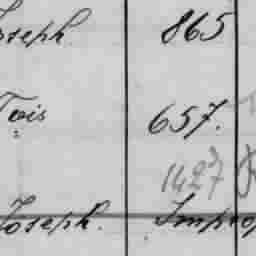 Joseph. 865
Tois 657.
1427
Joseph. Improp